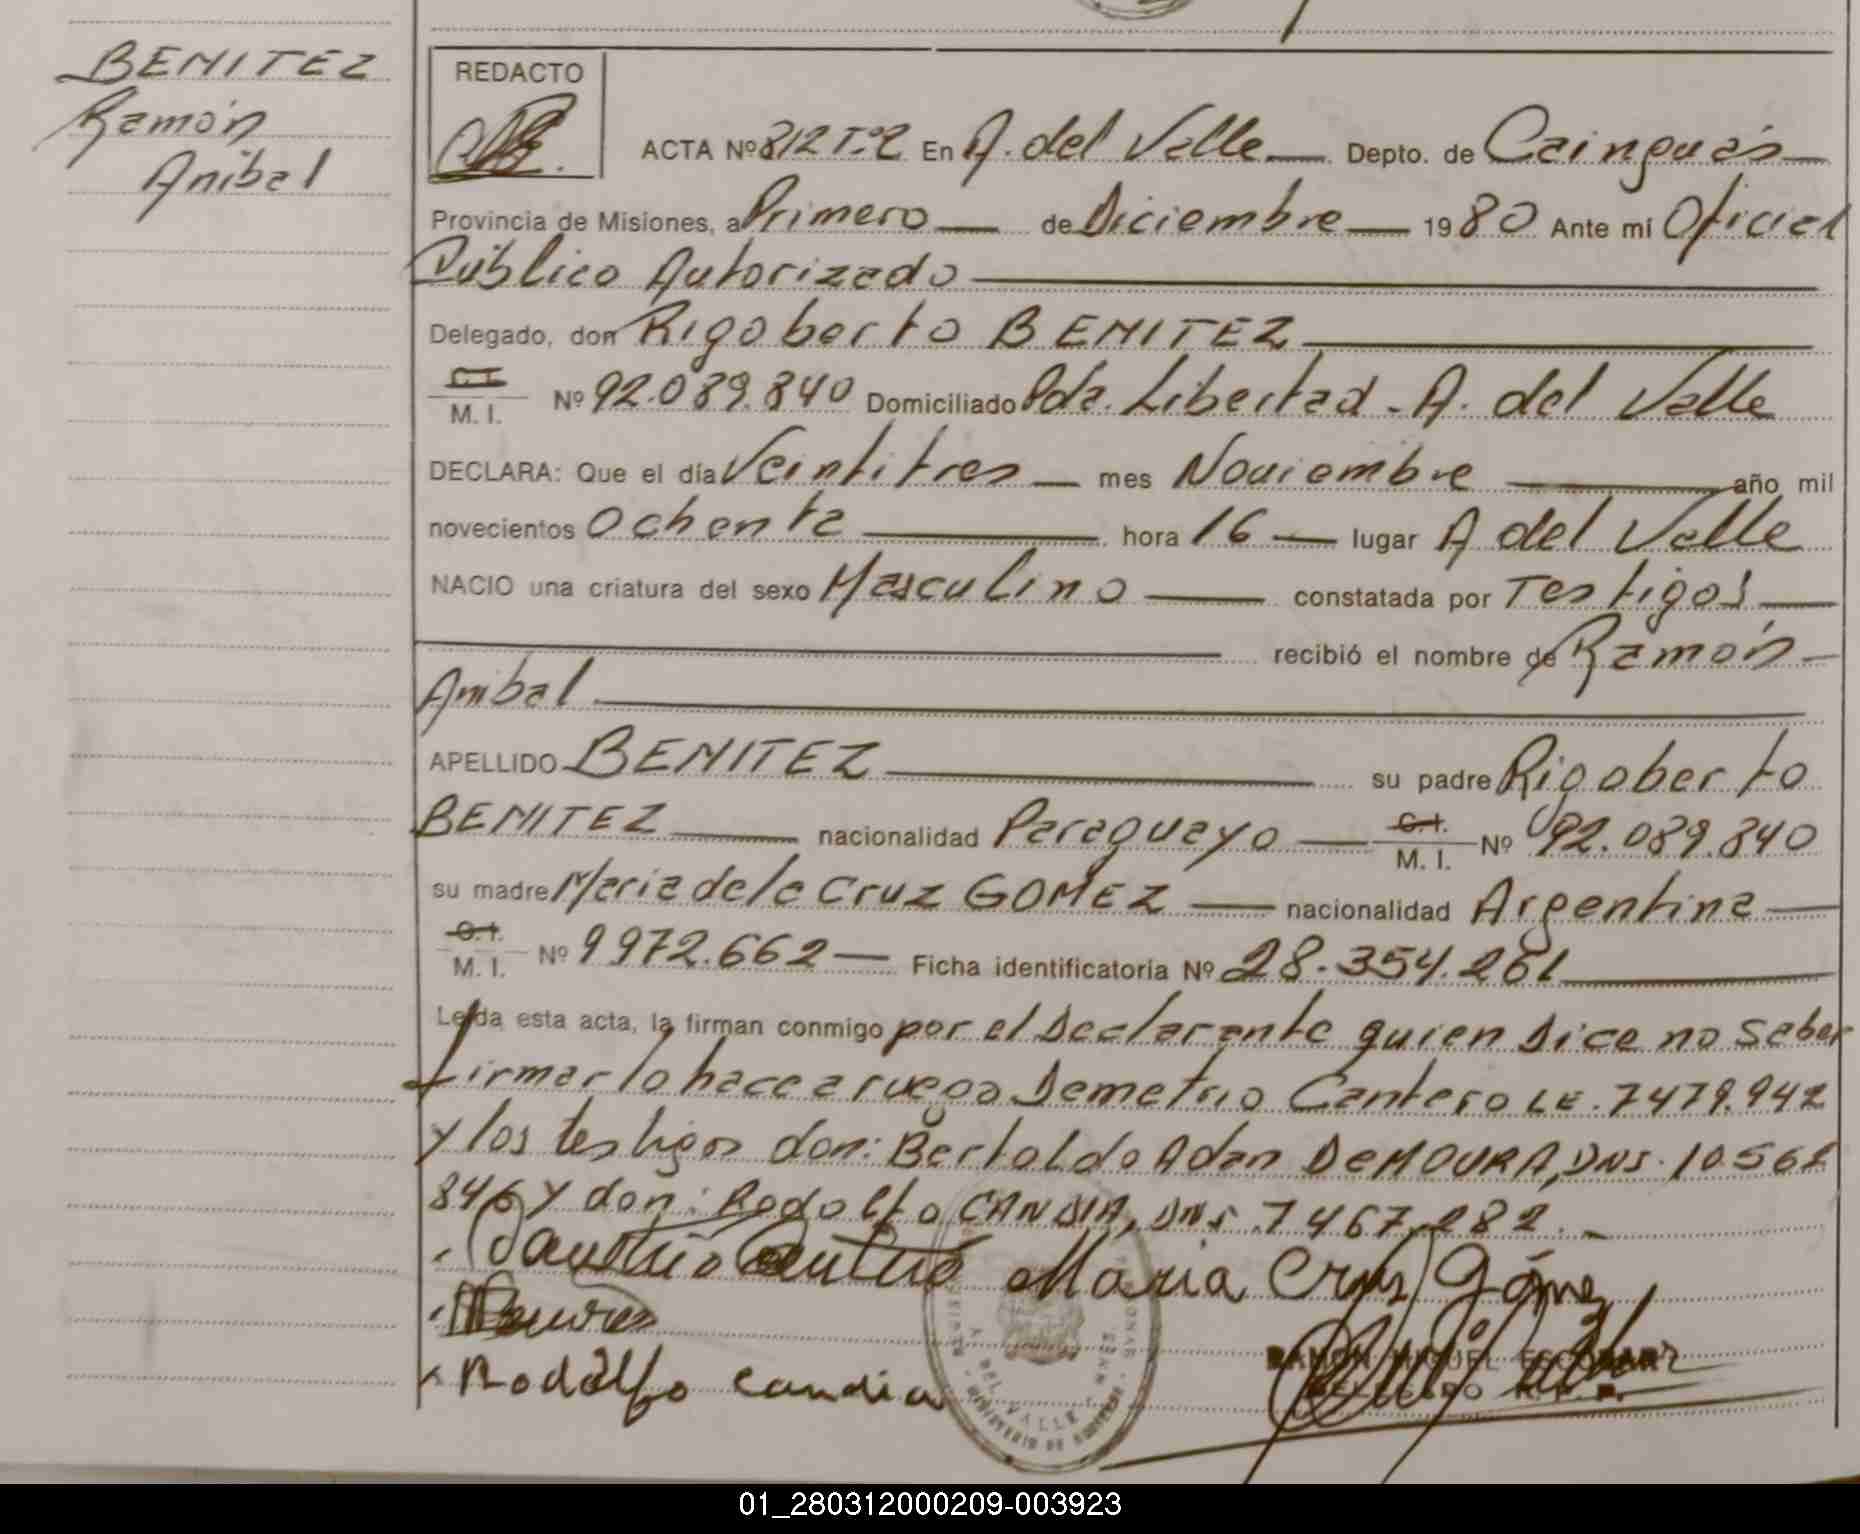 BENITEZ
Ramón
Anibal
REDACTO
ACTA Nº 812 Tº2 En A. del Valle Depto. de Cainguás
Provincia de Misiones, a Primero de Diciembre 1980 Ante mi Oficial
Público Autorizado
Delegado, don Rigoberto BENITEZ
C. I.
M. I. Nº 92.089.840 Domiciliado Pda. Libertad - A. del Valle
DECLARA: Que el día Veintitres mes Noviembre año mil
novecientos Ochenta hora 16 lugar A del Valle
NACIO una criatura del sexo Masculino constatada por Testigos
recibió el nombre de Ramón
Anibal
APELLIDO BENITEZ su padre Rigoberto
BENITEZ nacionalidad Paraguayo C. I. M. I. Nº 92.089.840
su madre Maria de la Cruz GOMEZ nacionalidad Argentina
C. I.
M. I. Nº 9972.662 Ficha identificatoria Nº 28.354.261
Leída esta acta, la firman conmigo por el Declarante quien Dice no Saber
firmar lo hace a ruego Demetrio Cantero LE. 7479.942
y los testigos don: Bertoldo Adan DeMOURA, DNI. 10.562
846 y don: Rodolfo CANDIA, DNI. 7467.282.
Maria Cruz Gómez
RAMON MIGUEL ESCOBAR
Rodolfo Candia
DELEGADO R. P. P.
DEL VALLE
MINISTERIO DE GOBIERNO
01_280312000209-003923